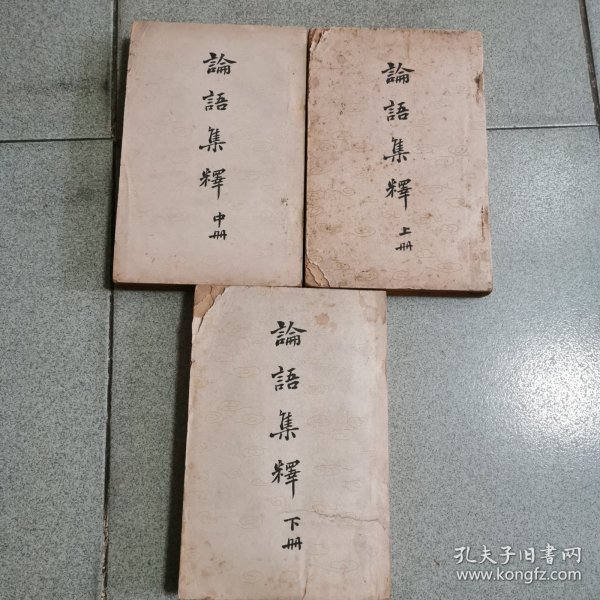 論語集釋
中册
論語集釋
上册
論語集釋
下册
孔夫子旧書网
www.kongfz.com